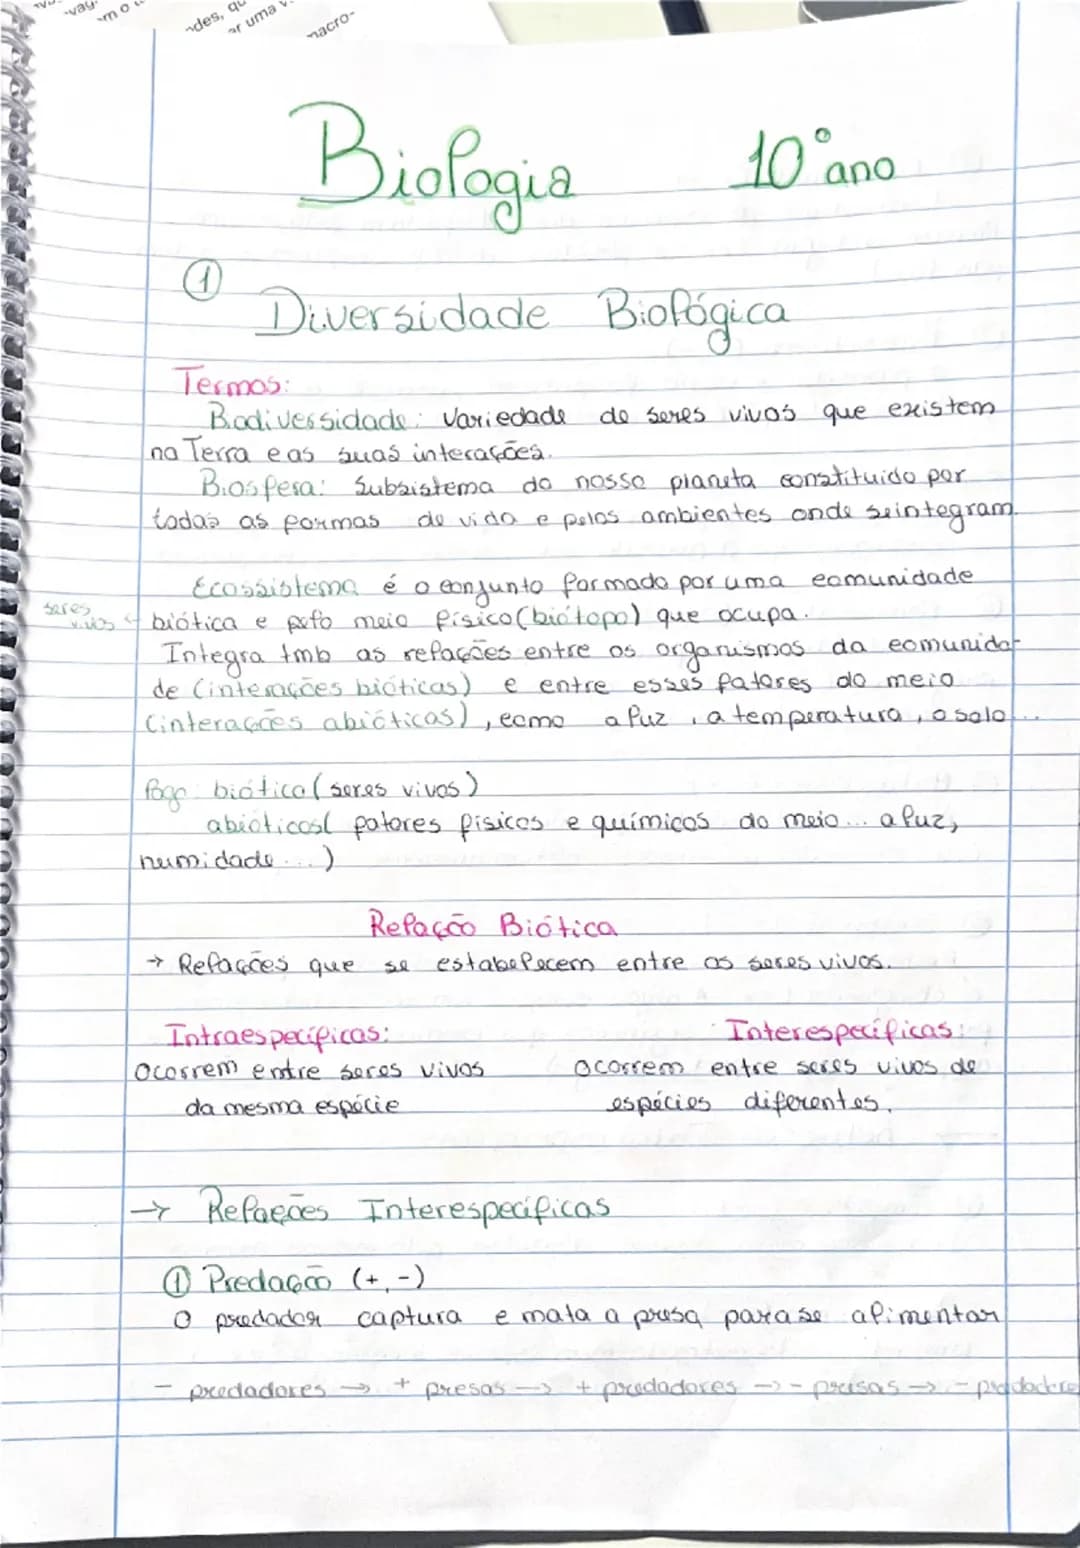 macro-
Biologia 10ºano
1
Diversidade Biológica
Termos:
Biodiversidade: Variedade de seres vivos que existem
na Terra e as suas interações.
Biosfera: Subsistema do nosso planeta constituido por
todas as formas de vida e pelos ambientes onde se integram.
Ecossistema é o conjunto formado por uma comunidade
seres vivos
biótica e pelo meio físico (biótopo) que ocupa.
Integra tmb as relações entre os organismos da comunida-
de (interações bióticas) e entre esses fatores do meio
(interações abióticas), como a luz, a temperatura, o solo...
logo: biótica (seres vivos)
abióticos( fatores físicos e químicos do meio... a luz,
humidade...)
Relação Biótica
→ Relações que se estabelecem entre os seres vivos.
Intraespecíficas: Interespecíficas:
Ocorrem entre seres vivos Ocorrem entre seres vivos de
da mesma espécie espécies diferentes.
→ Relações Interespecíficas
① Predação (+, -)
O predador captura e mata a presa para se alimentar
- predadores → + presas → + predadores → - presas → - predadores